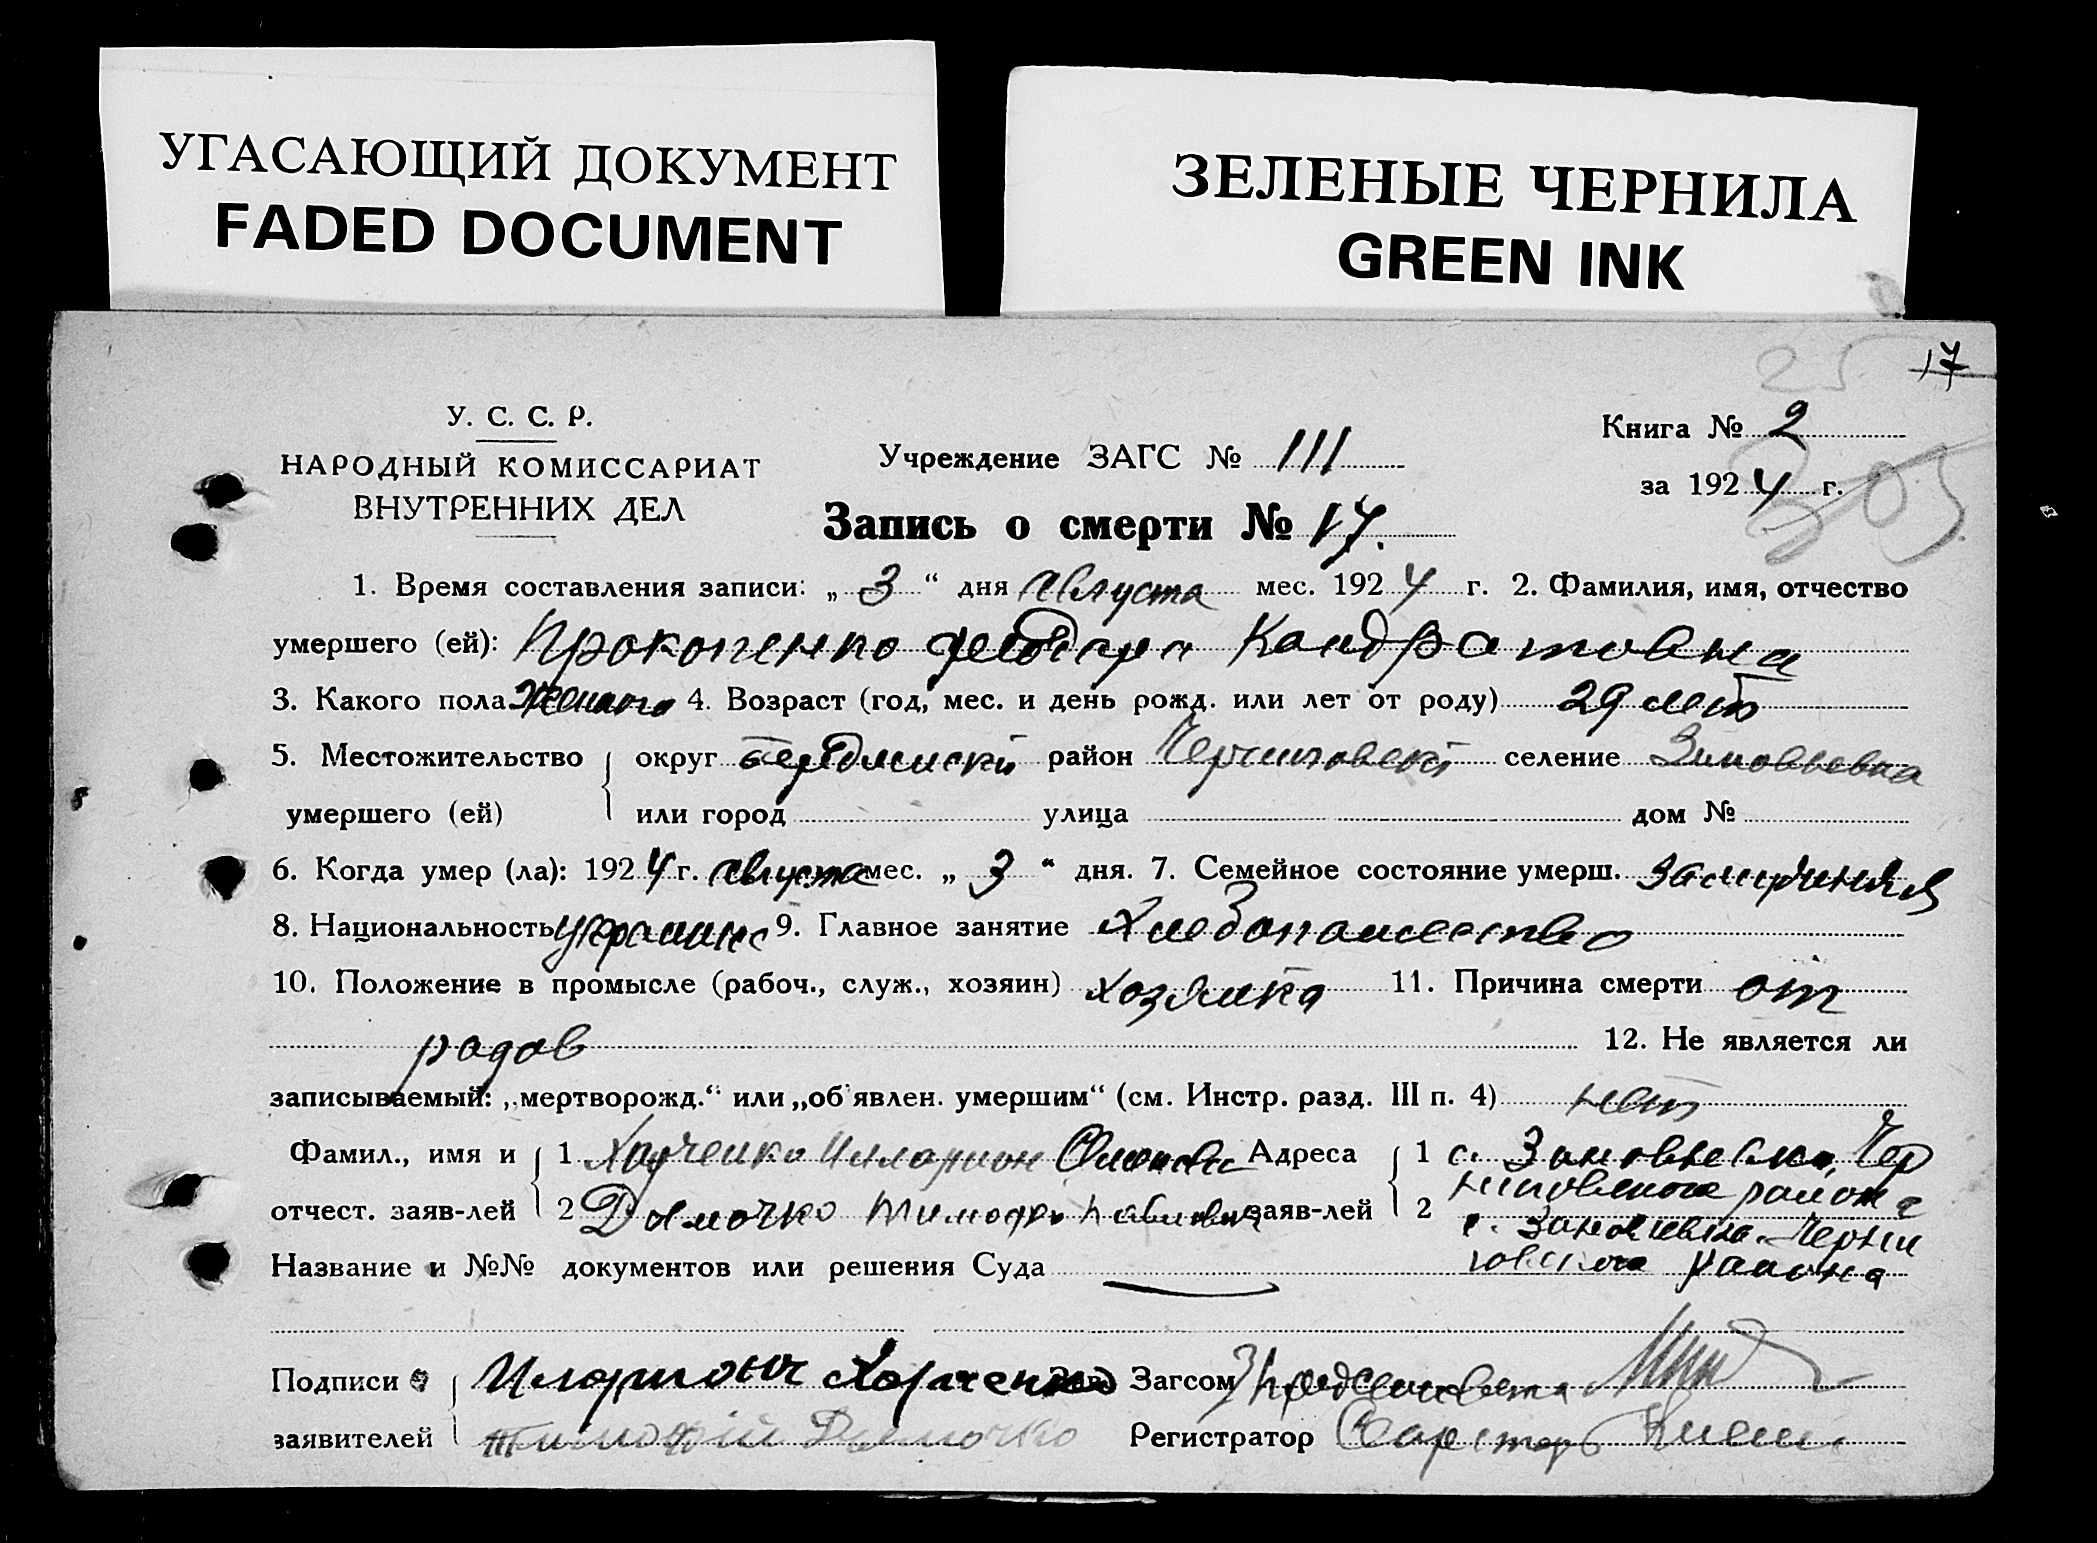 УГАСАЮЩИЙ ДОКУМЕНТ
FADED DOCUMENT
ЗЕЛЕНЫЕ ЧЕРНИЛА
GREEN INK
25 17
У. С. С. Р.
НАРОДНЫЙ КОМИССАРИАТ
ВНУТРЕННИХ ДЕЛ
Учреждение ЗАГС № III
Книга № 2
за 1924 г.
Запись о смерти № 17.
1. Время составления записи: „ 3 “ дня Августа мес. 1924 г. 2. Фамилия, имя, отчество
умершего (ей): Прокопенко Кандратовна
3. Какого пола 4. Возраст (год, мес. и день рожд. или лет от роду) 29 лет
5. Местожительство округ район Черниговский селение Зиновьевка
умершего (ей) или город улица дом №
6. Когда умер (ла): 1924 г. августа мес. „ 3 “ дня. 7. Семейное состояние умерш.
8. Национальность 9. Главное занятие
10. Положение в промысле (рабоч., служ., хозяин) хозяйка 11. Причина смерти от
родов
12. Не является ли
записываемый: „мертворожд.“ или „об'явлен. умершим“ (см. Инстр. разд. III п. 4) нет
Фамил., имя и 1 Харченко Илларион Адреса 1 с. Чер
ниговского района
отчест. заяв-лей 2 Дымочко Тимофей Павлович заяв-лей 2
с. Черни
говского района
Название и №№ документов или решения Суда
Подписи Харченко Зав. Загсом
заявителей Тимофій Дымочко Регистратор